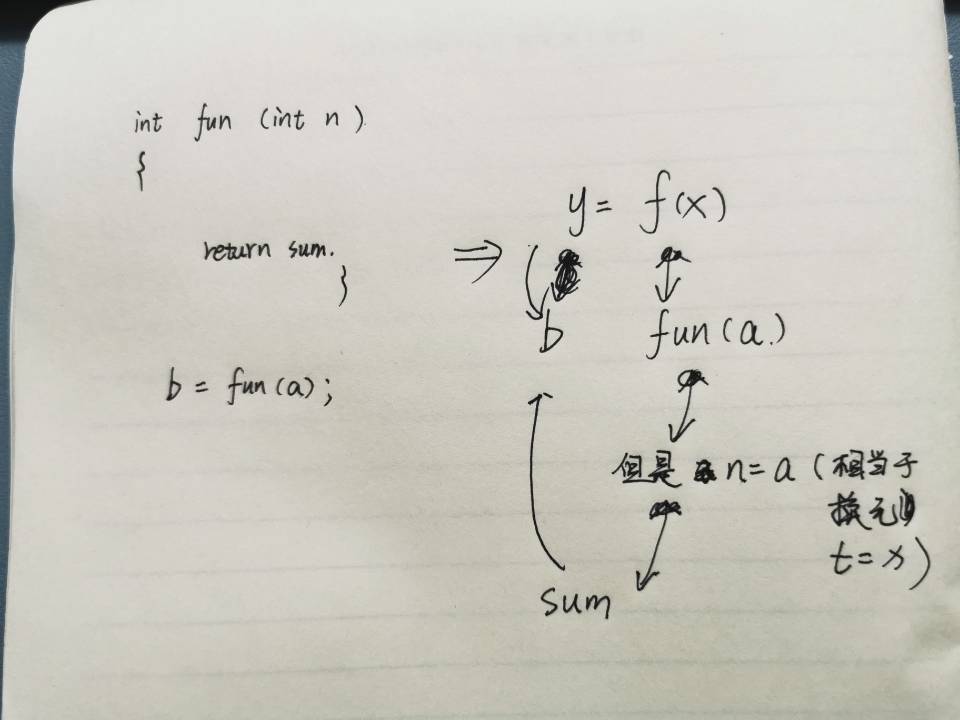 int fun (int n)
{
return sum.
}
b = fun(a);
⇒
y = f(x)
b fun(a.)
但是 n=a (相当于
换元
t=x)
sum